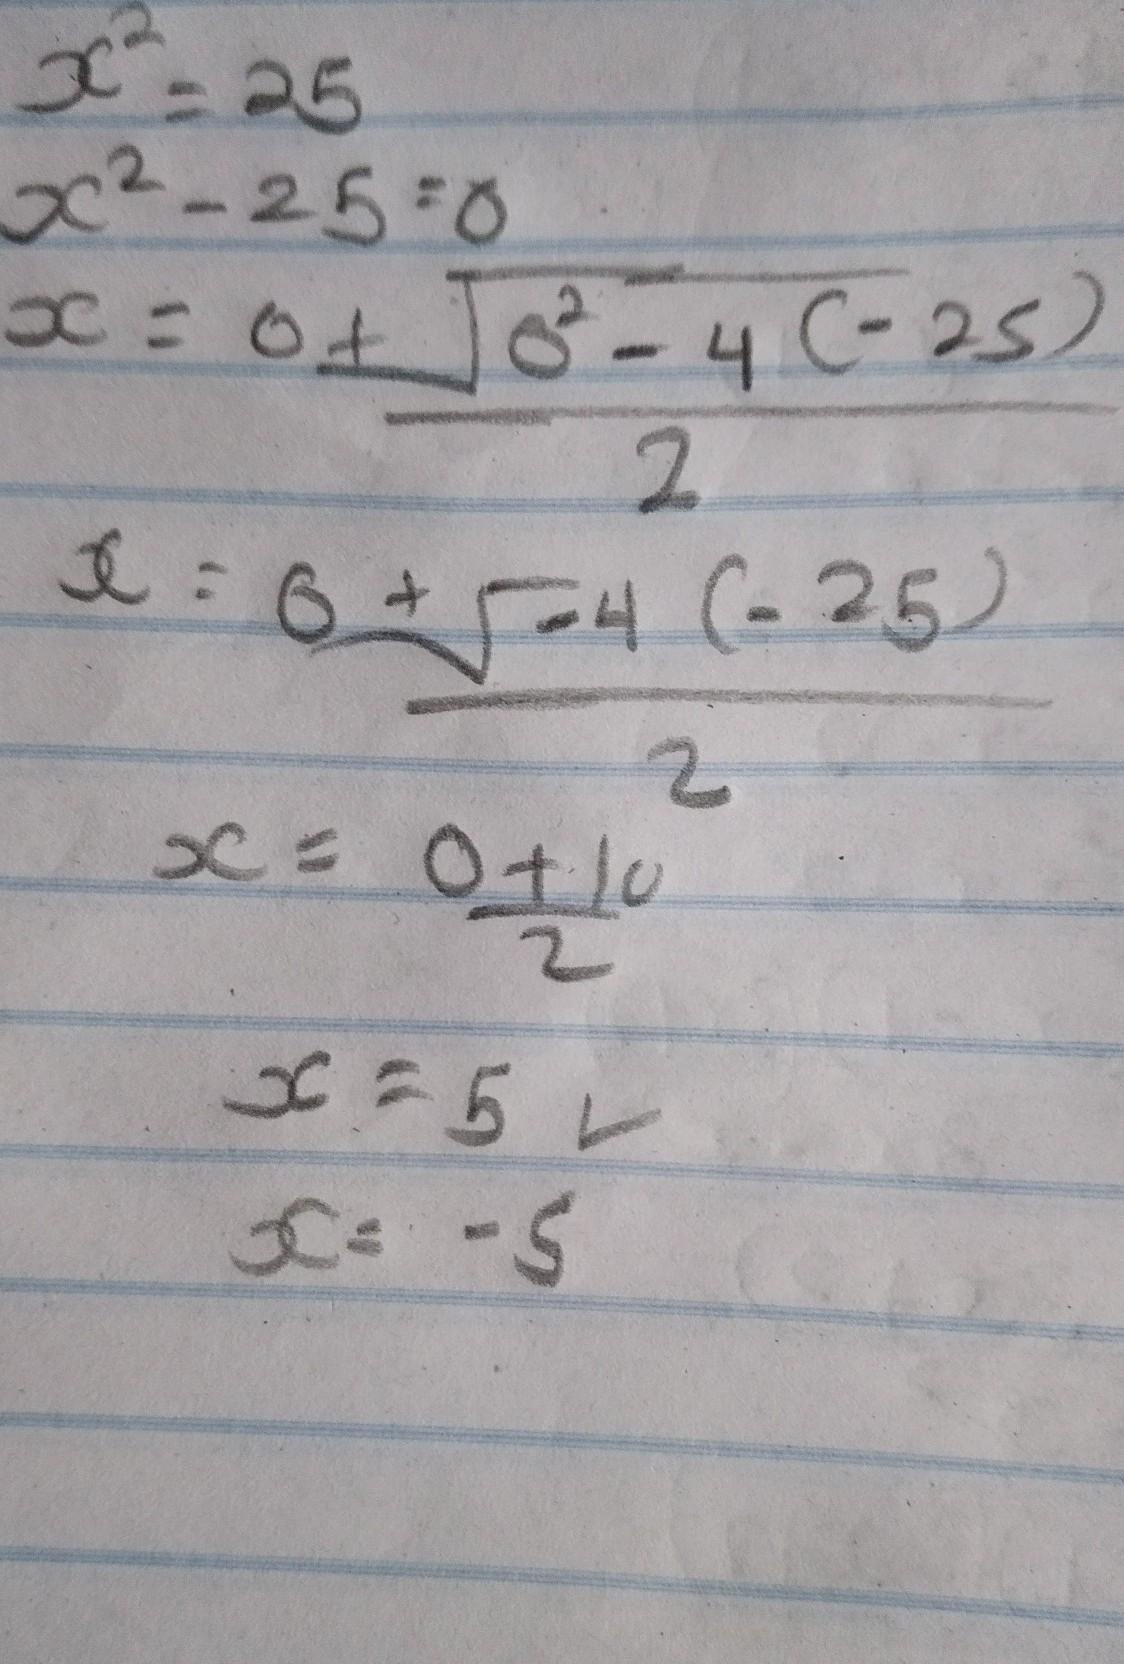 x² = 25
x² - 25 = 0
x = 0 ± √0² - 4 (- 25)
2
x = 0 ± √-4 (- 25)
2
x = 0 ± 10
2
x = 5 ✓
x = - 5